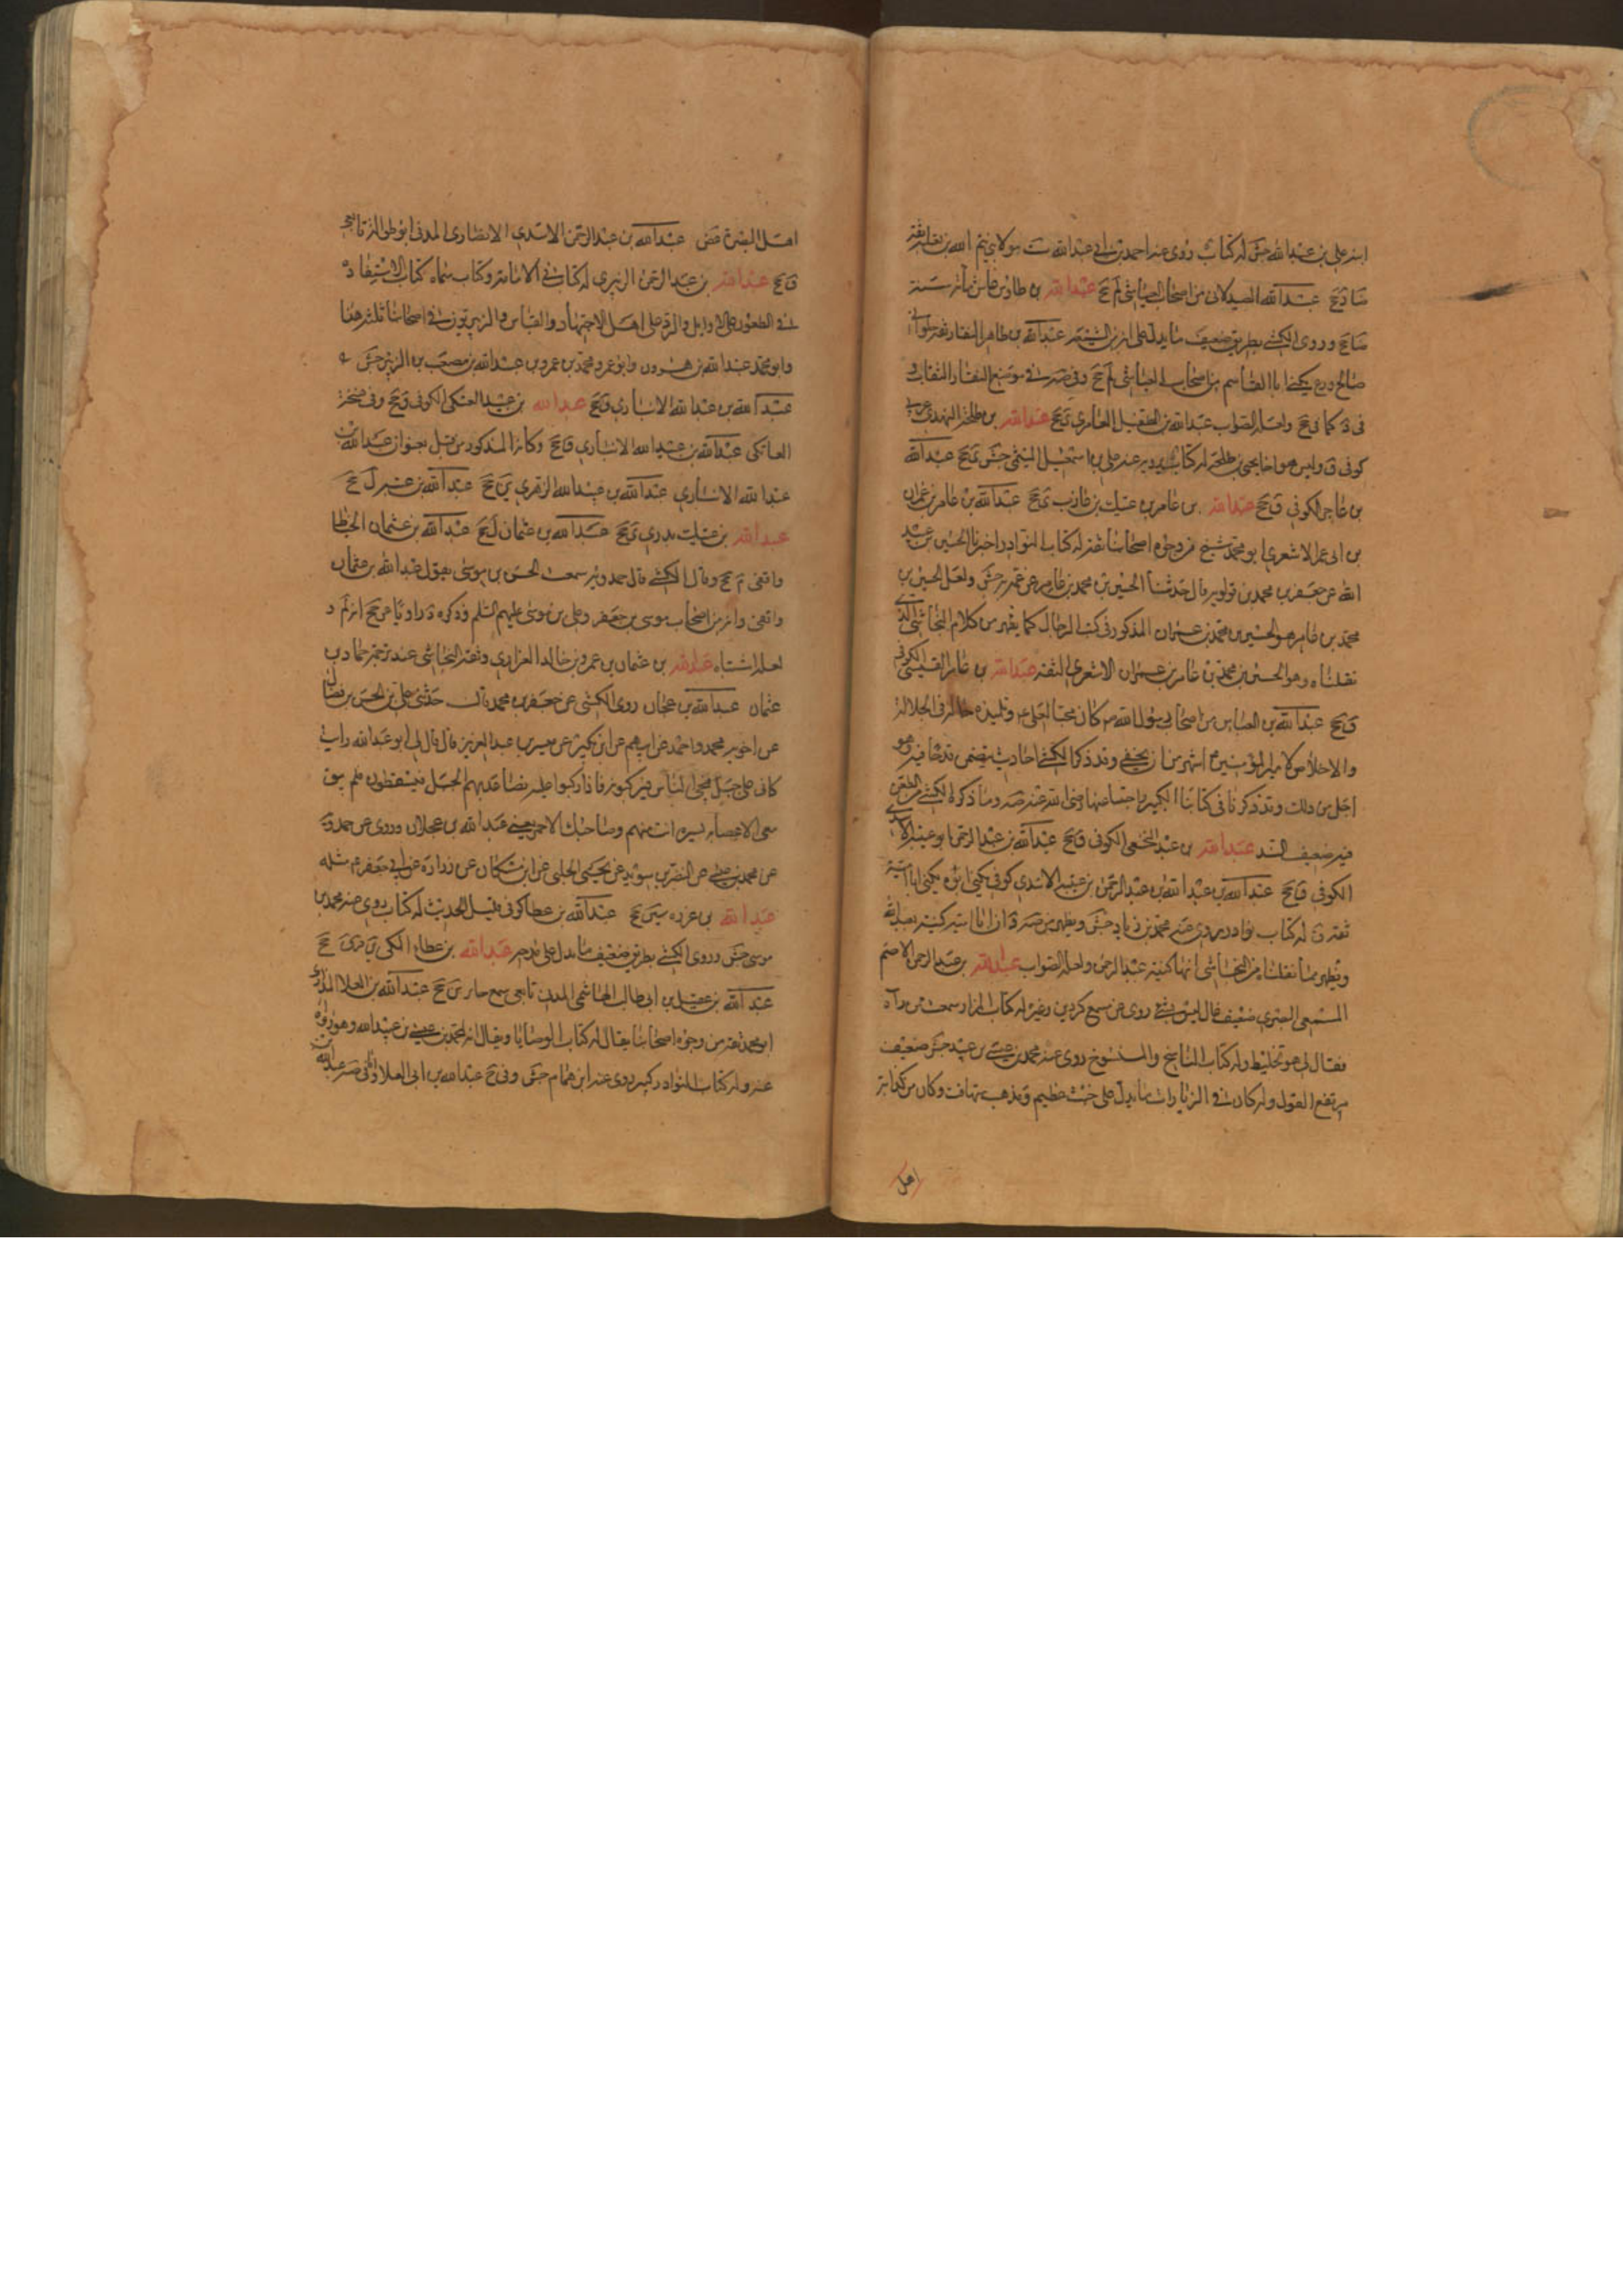 ابنه علي بن عبد الله جش له كتاب روى عنه احمد بن ابي عبد الله ست مولا بني تيم الله بن ثعلبة ثقة
عبد الله الصيدلاني من اصحاب العياشي لم جخ عبد الله بن طاوس عاش مائة سنة
ضا جخ وروى الكشي بطريق ضعيف ما يدل على انه من الشيعة عبد الله بن طاهر النقار ثقة حلواني
صالح ورع يكنى ابا القاسم من اصحاب العياشي لم جخ وفي موضع النقار النقاب
في د كما في جخ ولعله الصواب عبد الله بن الطفيل العامري ي جخ عبد الله بن طلحة النهدي عربي
كوفي ق وليس هو اخا يحيى بن طلحة له كتاب يرويه عنه علي بن اسمعيل الميثمي جش ق جخ عبد الله
بن الكوفي ق جخ عبد الله بن عامر بن عتيك بن عازب ي جخ عبد الله بن عامر بن عمران
بن ابي عمر الاشعري ابو محمد شيخ من وجوه اصحابنا ثقة له كتاب النوادر اخبرنا الحسين بن عبيد
الله عن جعفر بن محمد بن قولويه قال حدثنا الحسين بن محمد بن عامر عن عمه به جش ولعل الحسين بن
محمد بن عامر هو الحسين بن محمد بن عمران المذكور في كتب الرجال كما يظهر من كلام النجاشي الذي
نقلناه وهو الحسين بن محمد بن عامر بن عمران الاشعري الثقة عبد الله بن عامر القيسي الكوفي
ق جخ عبد الله بن العباس من اصحاب رسول الله ص كان محبا لعلي ع وتلميذه حاله في الجلالة
والاخلاص لامير المؤمنين ع اشهر من ان يخفى وقد ذكر الكشي احاديث يتضمن قدحا فيه وهو
اجل من ذلك وقد ذكرنا في كتابنا الكبير واجبنا عنها رضي الله عنه صه وما ذكره الكشي من الطعن
فيه ضعيف السند عبد الله بن عبد النخعي الكوفي ق جخ عبد الله بن عبد الرحمن ابو عتيبة الاسدي
الكوفي ق جخ عبد الله بن عبد الله بن عبد الرحمن بن عتيبة الاسدي كوفي يكنى ابوه يكنى ابا امية
ثقة ق له كتاب نوادر يروي عنه محمد بن زياد جش ويظهر من صه ود ان ابا امية كنية بعبد الله
ويظهر مما نقلناه من النجاشي انها كنية عبد الرحمن ولعله الصواب عبد الله بن عبد الرحمن الاصم
المسمعي البصري ضعيف غال ليس بشيء روى عن مسمع كردين وغيره له كتاب المزار سمعت من رآه
فقال لي هو تخليط وله كتاب الناسخ والمنسوخ روى عنه محمد بن عيسى بن عبيد جش ضعيف
مرتفع القول وله كتاب في الزيارات ما يدل على خبث عظيم ومذهب متهافت وكان من كذابة
اهل
اهل البصرة غض عبد الله بن عبد الرحمن الاسدي الانصاري المدني ابو طوالة تابعي
ق جخ عبد الله بن عبد الرحمن الزبيري له كتاب في الامامة وكتاب سماه كتاب الاستفادة
في الطعون على الاوايل والرد على اهل الاجتهاد والقياس والزبيريون في اصحابنا ثلثة هذا
وابو محمد عبد الله بن هرون وابو عمرو محمد بن عمرو بن عبد الله بن مصعب بن الزبير جش
عبد الله بن عبد الله الانباري ق جخ عبد الله بن عبيد العتكي الكوفي ق جخ وفي نسخة
العاتكي عبد الله بن عبيد الله الانباري ق جخ وكانه المذكور من قبل بعنوان عبد الله بن
عبد الله الانباري عبد الله بن عبيد الله الزهري ين جخ عبد الله بن عتبة ل جخ
عبد الله بن عتيك بدري ي جخ عبد الله بن عثمان ل جخ عبد الله بن عثمان الحناط
واقفي م جخ وقال الكشي قال حمدويه سمعت الحسن بن موسى يقول عبد الله بن عثمان
واقفي وانه من اصحاب موسى بن جعفر وعلي بن موسى عليهم السلم وذكره د راويا عن جخ انه لم د
لعله اشتباه عبد الله بن عثمان بن عمرو بن خالد الفزاري وثقه النجاشي عند ترجمة حماد بن
عثمان عبد الله بن عجلان روى الكشي عن جعفر بن محمد قال حدثني علي بن الحسن بن فضال
عن اخويه محمد واحمد عن ابيهم عن ابن بكير عن ميسر بن عبد العزيز قال قال لي ابو عبد الله رأيت
كاني على جبل فيجيء الناس فيركبونه فاذا ركبوا عليه تصاعد بهم الجبل فيسقطون فلم يبق
معي الا عصابة يسيرة انت منهم وصاحبك الاحمر يعني عبد الله بن عجلان وروى عن حمدويه
عن محمد بن عيسى عن النضر بن سويد عن يحيى الحلبي عن ابن مسكان عن زرارة عن ابي جعفر ع مثله
عبد الله بن عزرة سين جخ عبد الله بن عطا كوفي قليل الحديث له كتاب روى عنه محمد بن
موسى جش وروى الكشي بطريق ضعيف ما يدل على مدحه عبد الله بن عطاء المكي ين قر ق جخ
عبد الله بن عقيل بن ابي طالب الهاشمي المدني تابعي سمع جابر ين جخ عبد الله بن العلا المذاري
ابو محمد ثقة من وجوه اصحابنا يقال له كتاب الوصايا ويقال انه لمحمد بن عيسى بن عبيد الله وهو رواه
عنه وله كتاب النوادر كبير روى عنه ابن همام جش وفي جخ عبد الله بن ابي العلاء وفي صه عبد الله بن